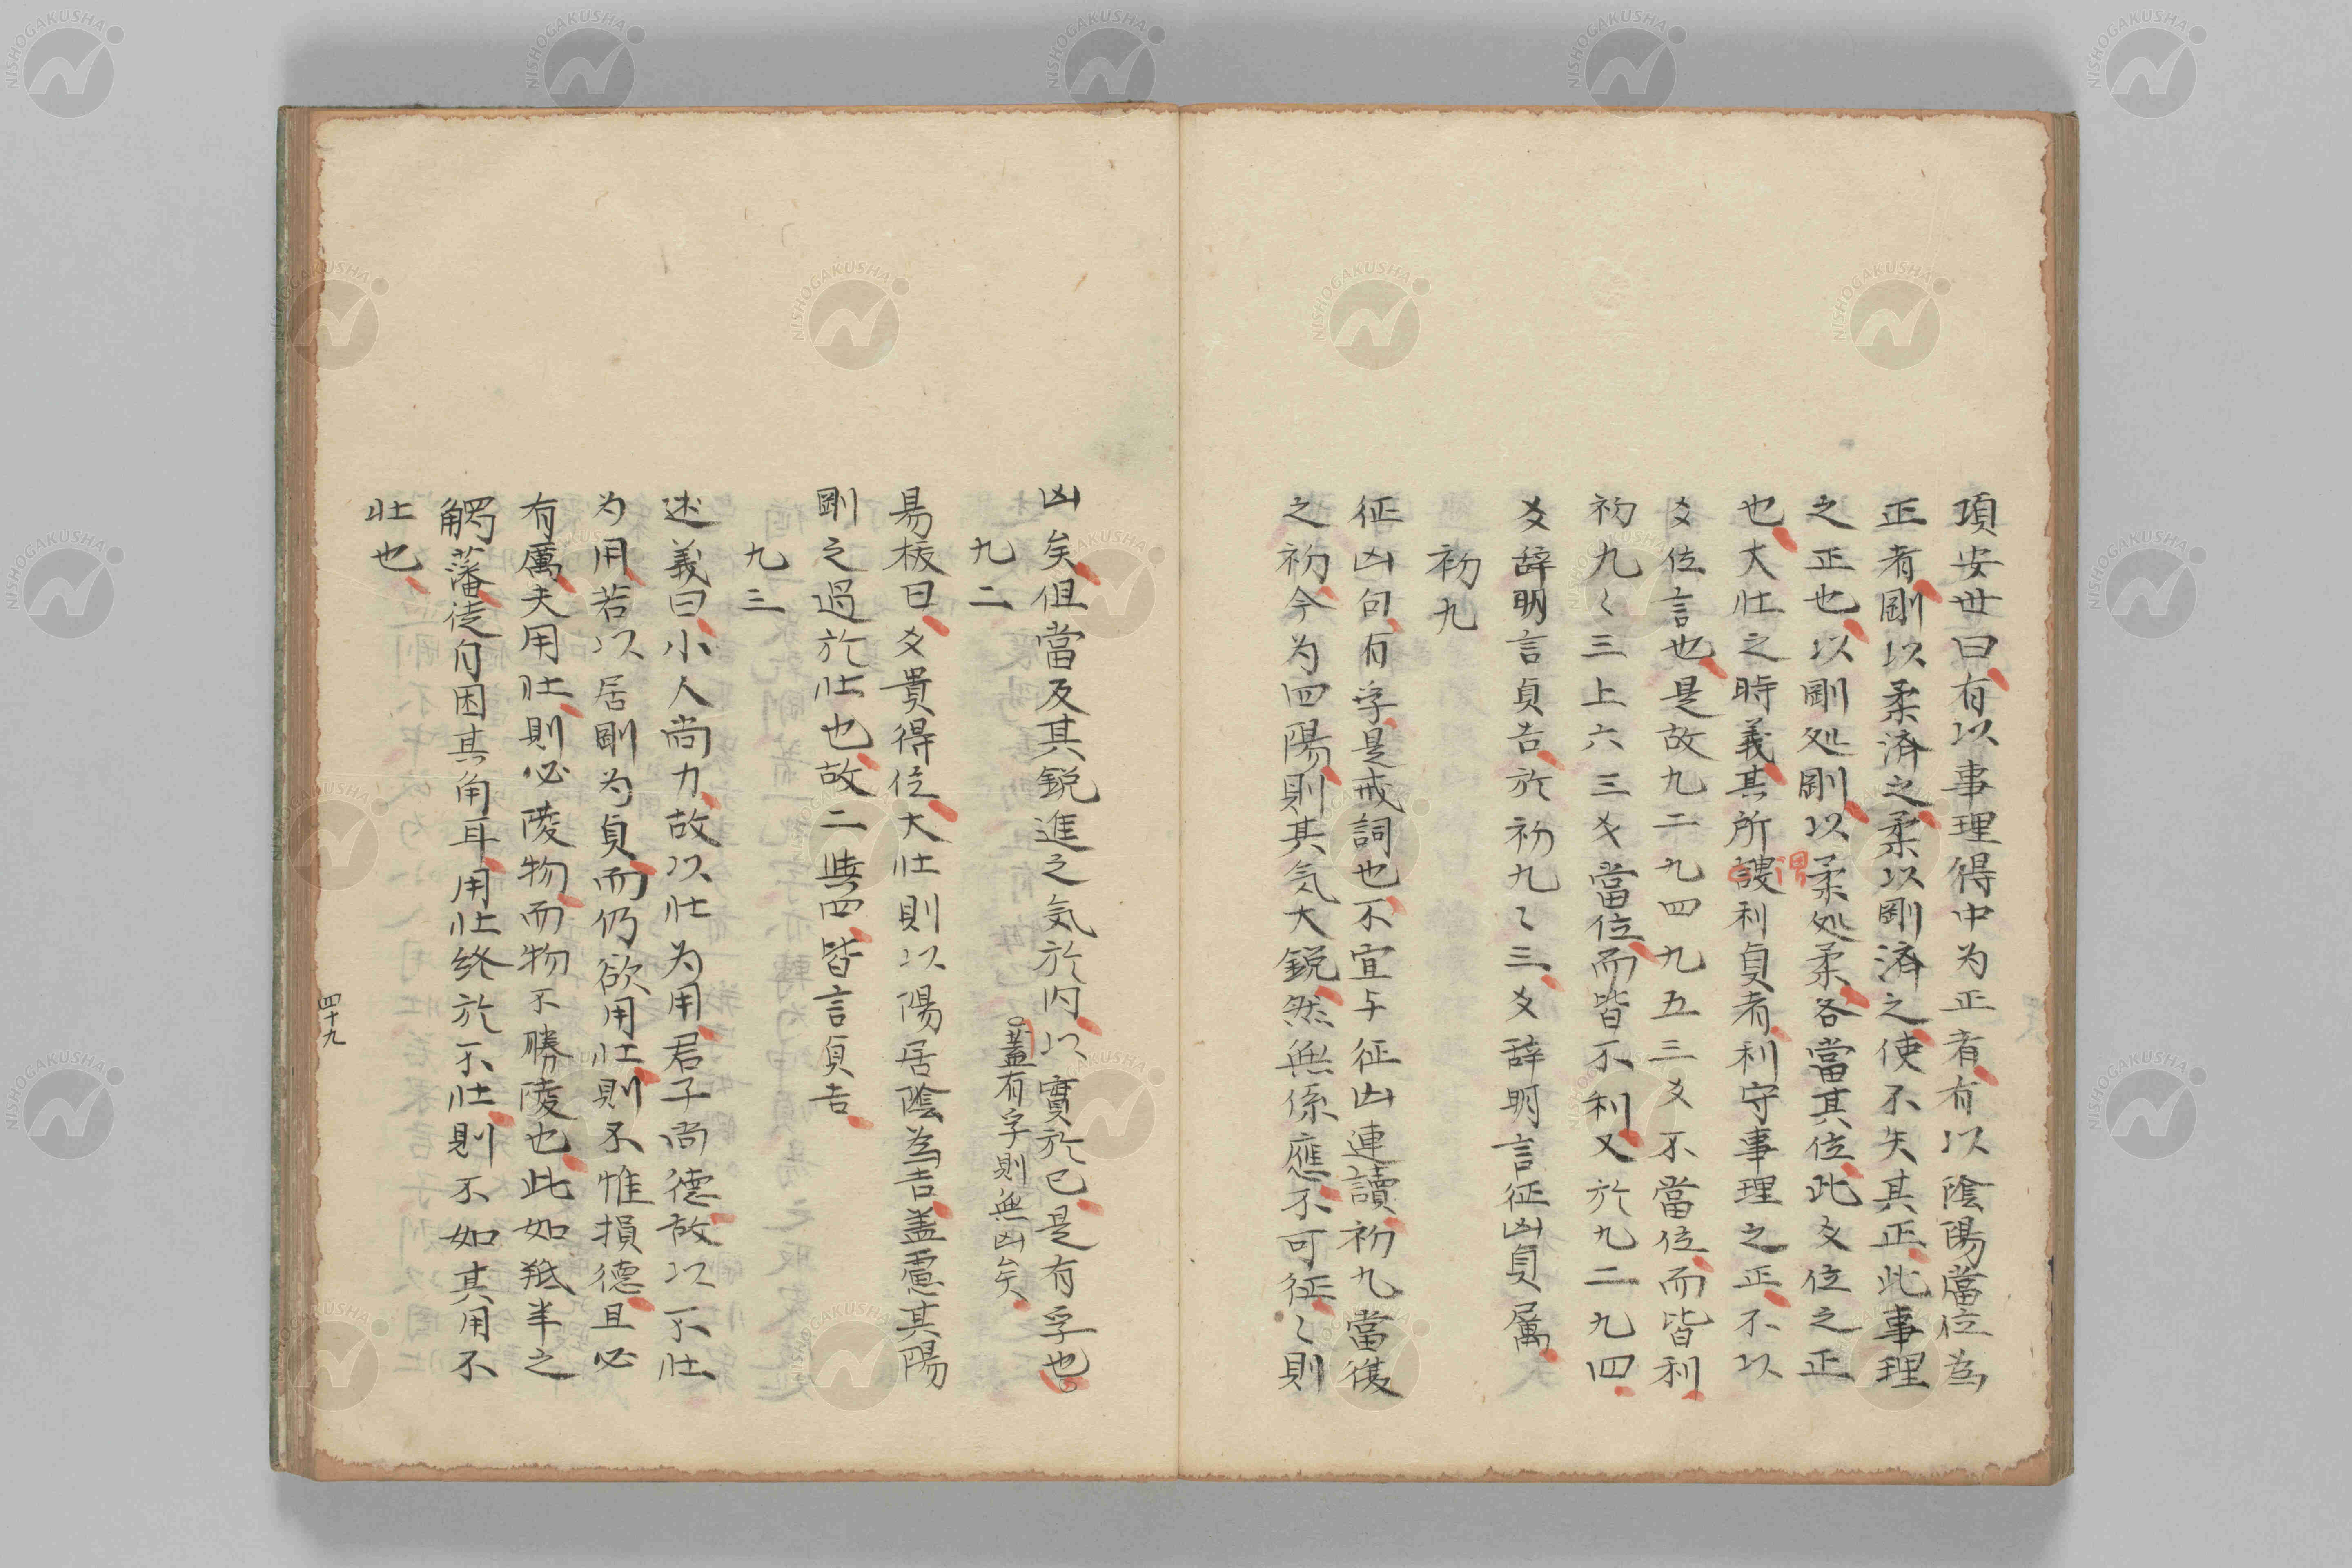 項安世曰有以事理得中为正者有以陰陽當位為
正者剛以柔済之柔以剛済之使不失其正此事理
之正也以剛処剛以柔処柔各當其位此爻位之正
也大壮之時義其所謂利貞者利守事理之正不以
爻位言也是故九二九四九五三爻不當位而皆利
初九〻三上六三爻當位而皆不利又於九二九四
爻辞明言貞吉於初九〻三爻辞明言征凶貞厲
初九
征凶句有孚是戒詞也不宜与征凶連讀初九當復
之初今为四陽則其気大鋭然無係應不可征〻則
凶矣但當反其鋭進之気於内以實於己是有孚也
蓋有孚則無凶矣
九二
易核曰爻貴得位大壮則以陽居陰為吉盖慮其陽
剛之過於壮也故二與四皆言貞吉
九三
述義曰小人尚力故以壮为用君子尚德故以不壮
为用若以居剛为貞而仍欲用壮則不惟損德且必
有厲夫用壮則必陵物而物不勝陵也此如羝羊之
觸藩徒自困其角耳用壮終於不壮則不如其用不
壮也
四十九
NISHOGAKUSHA